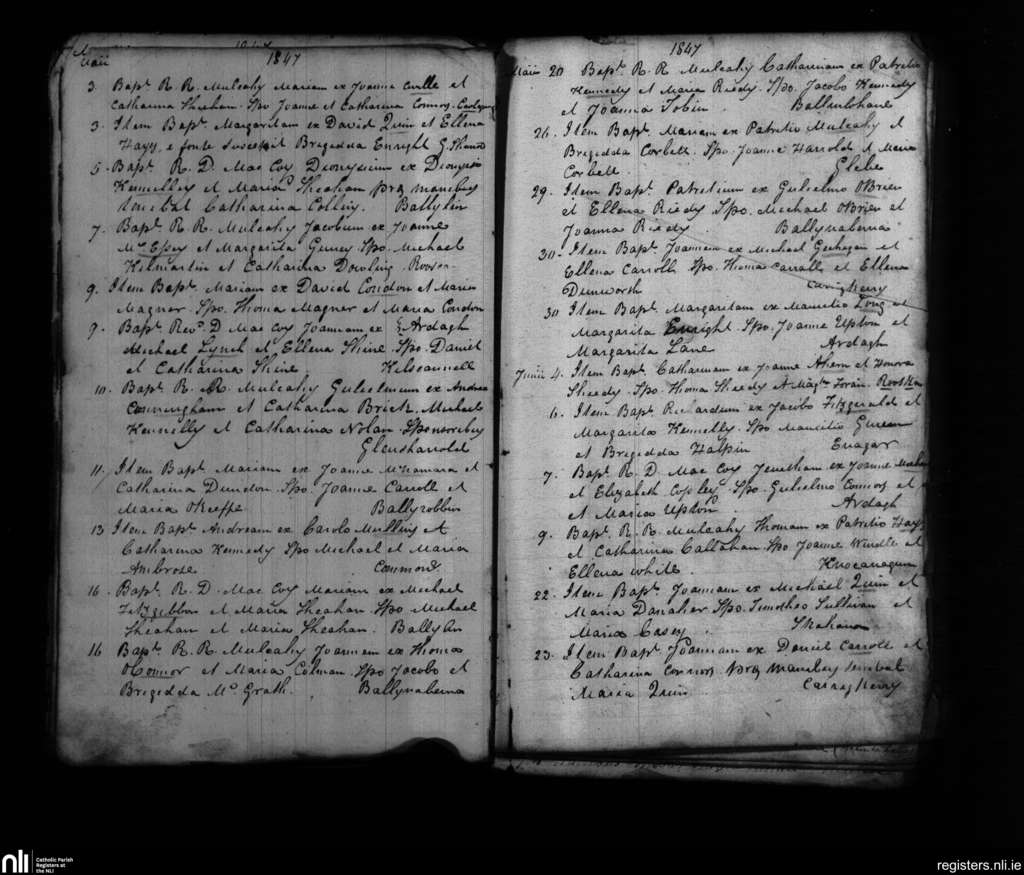 Maii 1847
3 Bapt. R. R. Mulcahy Mariam ex Joanne Curlle et
Catharina Sheehan. Spo Joanne et Catharina Connors
3. Item Bapt. Margaritam ex David Quin et Ellena
Hays, e fonte Brigedda Enright
5. Bapt. R. D. Mac Coy Dionysium ex Dionysio
Kennelley et Maria Sheahan
tenebat Catharina Collins. Ballylin
7. Bapt. R. R. Mulcahy Jacobum ex Joanne
Mc Essey et Margarita Guiney. Spo. Michael
Kilmartin et Catharina Dowling.
9. Item Bapt. Mariam ex David Condon et Maria
Magner. Spo. Thoma Magner et Maria Condon
9. Bapt. Revd. D Mac Coy Joannam ex Ardagh
Michael Lynch et Ellena Shine. Spo. Daniel
et Catharina Shine Kilscannell
10. Bapt. R. R. Mulcahy Gulielmum ex Andrea
Cunningham et Catharina Brick. Michael
Kennelly et Catharina Nolan. Sponsoribus
Glensharrold
11. Item Bapt. Mariam ex Joanne McNamara et
Catharina Dundon. Spo. Joanne Carroll et
Maria OKeeffe Ballyrobbin
13 Item Bapt. Andream ex Carolo Mullins et
Catharina Kennedy Spo Michael et Maria
Ambrose Commons
16. Bapt. R. D. Mac Coy Mariam ex Michael
Fitzgibbon et Maria Sheahan. Spo Michael
Sheahan et Maria Sheahan.
16 Bapt. R. R. Mulcahy Joannem ex Thoma
OConnor et Maria Colman. Spo Jacobo et
Brigedda Mc Grath. Ballynaberna
1847
Maii 20 Bapt. R. R. Mulcahy Catharinam ex Patritio
Kennedy et Maria Riedy. Spo. Jacobo Kennedy
et Joanna Tobin.
26. Item Bapt. Mariam ex Patritio Mulcahy et
Brigedda Corbett. Spo. Joanne Harrold et Maria
Corbett. Glebe
29. Item Bapt. Patritium ex Gulielmo OBrien
et Ellena Riedy Spo. Michael OBrien et
Joanna Riedy. Ballynaberna
30. Item Bapt. Joannem ex Michael Geehegan et
Ellena Carroll Spo. Thoma Carroll et Ellena
Dunworth Carrigkerry
30 Item Bapt. Margaritam ex Mauritio Long et
Margarita Enright. Spo. Joanne Upton et
Margarita Lane Ardagh
Junii 4. Item Bapt. Catharinam ex Joanne Ahern et Honora
Sheedy. Spo. Thoma Sheedy et
6. Item Bapt. Richardum ex Jacobo Fitzgerald et
Margarita Kennelly. Spo Mauritio
et Brigedda Halpin
7. Bapt. R. D. Mac Coy ex Joanne
et Elizabeth Copley. Spo. Gulielmo Connors et
et Maria Upton. Ardagh
9. Bapt. R. R. Mulcahy Thomam ex Patritio Hays
et Catharina Callahan. Spo Joanne Windle et
Ellena White.
22. Item Bapt. Joannam ex Michael Quin et
Maria Danaher Spo. Timotheo Sullivan et
Maria Casey.
23. Item Bapt. Joannam ex Daniel Carroll et
Catharina Connors
Maria Quin Carrigkerry
nli Catholic Parish
Registers at
the NLI
registers.nli.ie